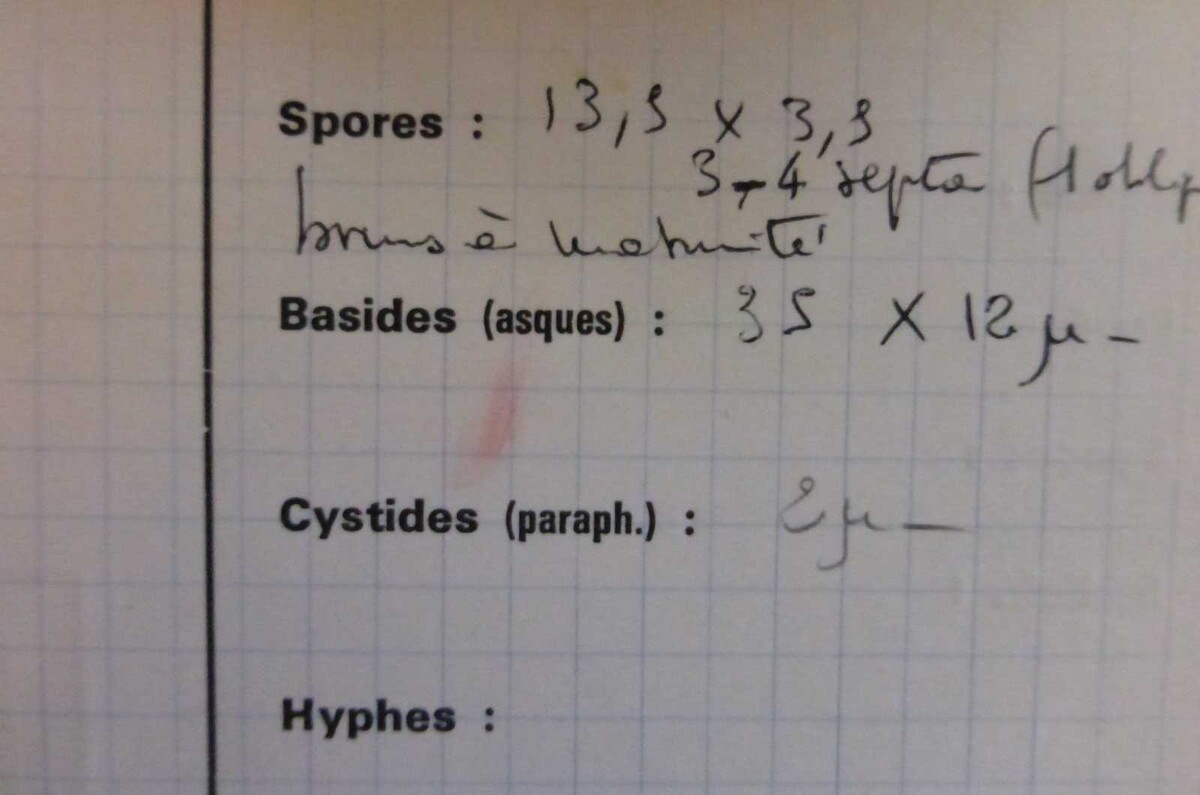 Spores : 13,5 x 3,5
3-4 septa
bruns à maturité
Basides (asques) : 35 X 12 µ -
Cystides (paraph.) : 2 µ -
Hyphes :